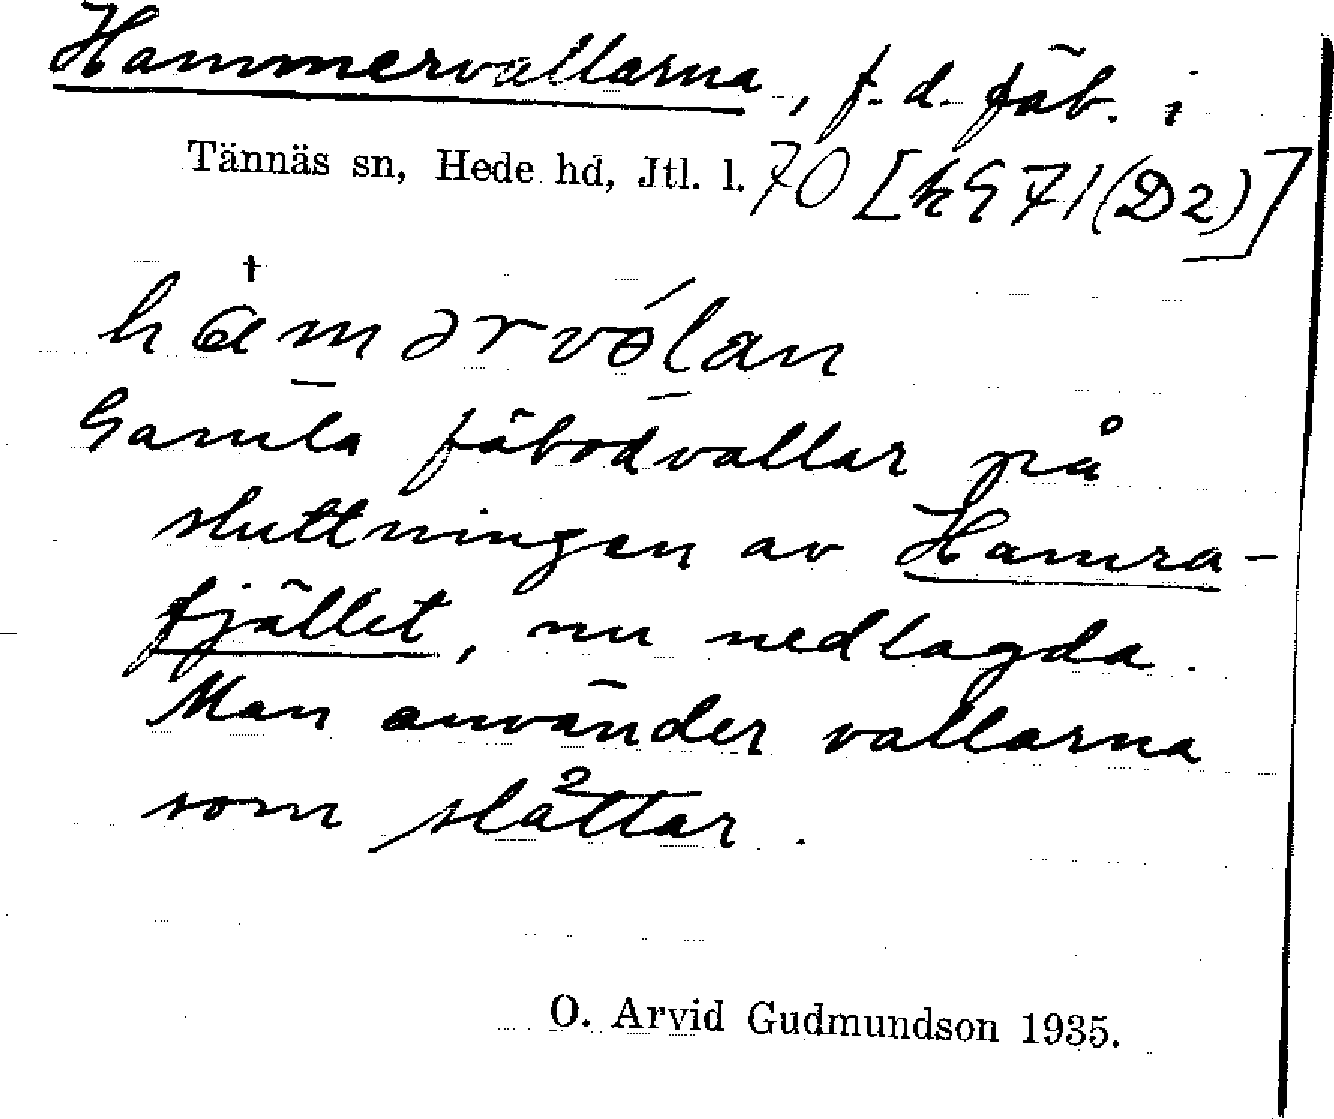 Hammervallarna, f. d. fäb. i
Tännäs sn, Hede hd, Jtl. l. 70 [kG71(D2)]
hámərvólan
Gamla fäbodvallar på
sluttningen av Hamra-
fjället, nu nedlagda.
Man använder vallarna
som slåttar.
O. Arvid Gudmundson 1935.